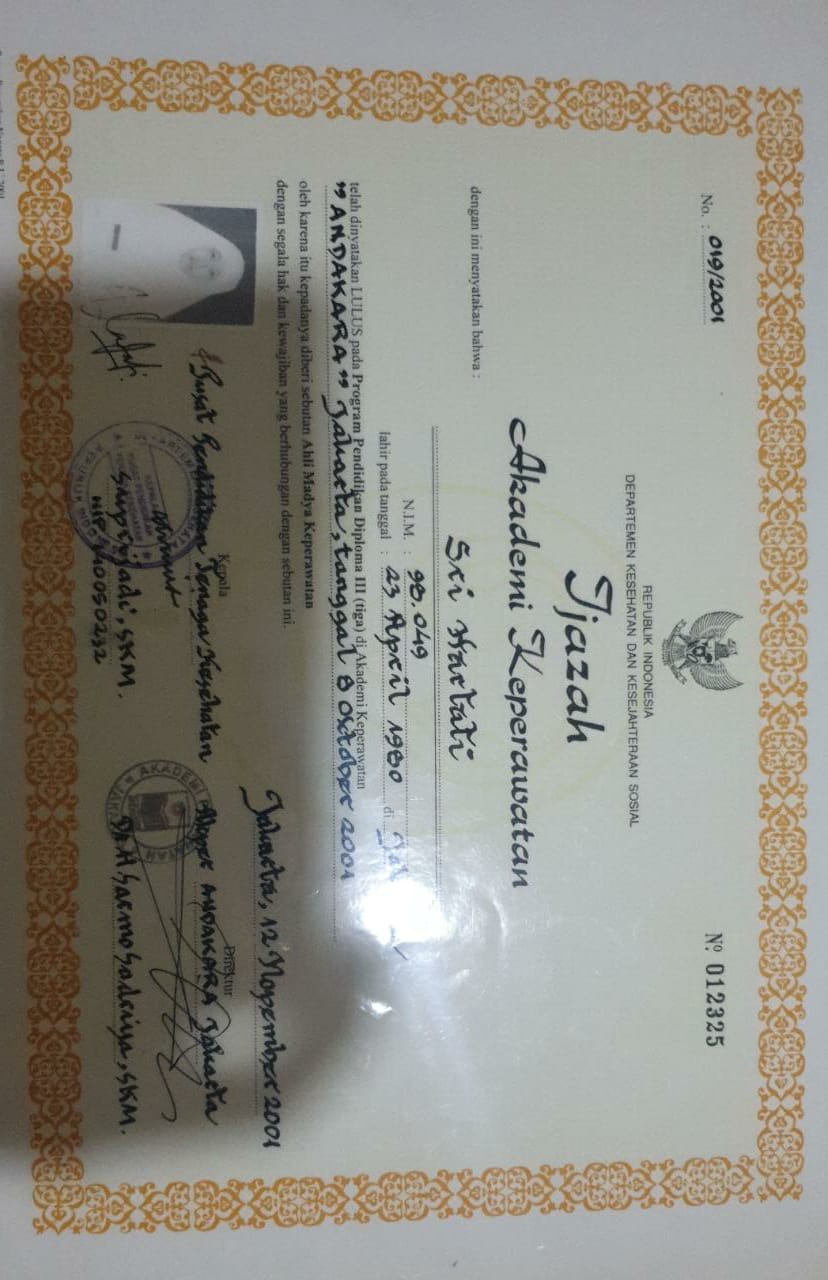 No. : 049/2001
Nº 012325
REPUBLIK INDONESIA
DEPARTEMEN KESEHATAN DAN KESEJAHTERAAN SOSIAL
Ijazah
Akademi Keperawatan
dengan ini menyatakan bahwa :
Sri Hartati
N.I.M. : 98.049
lahir pada tanggal : 23 April 1980 di
telah dinyatakan LULUS pada Program Pendidikan Diploma III (tiga) di Akademi Keperawatan
" ANDAKARA " Jakarta, tanggal 8 Oktober 2001
oleh karena itu kepadanya diberi sebutan Ahli Madya Keperawatan
dengan segala hak dan kewajiban yang berhubungan dengan sebutan ini.
Jakarta, 12 Nopember 2001
Kepala
Pusat Pendidikan Tenaga Kesehatan
Supriyadi, SKM.
Direktur
Akper ANDAKARA Jakarta
AKADEMI